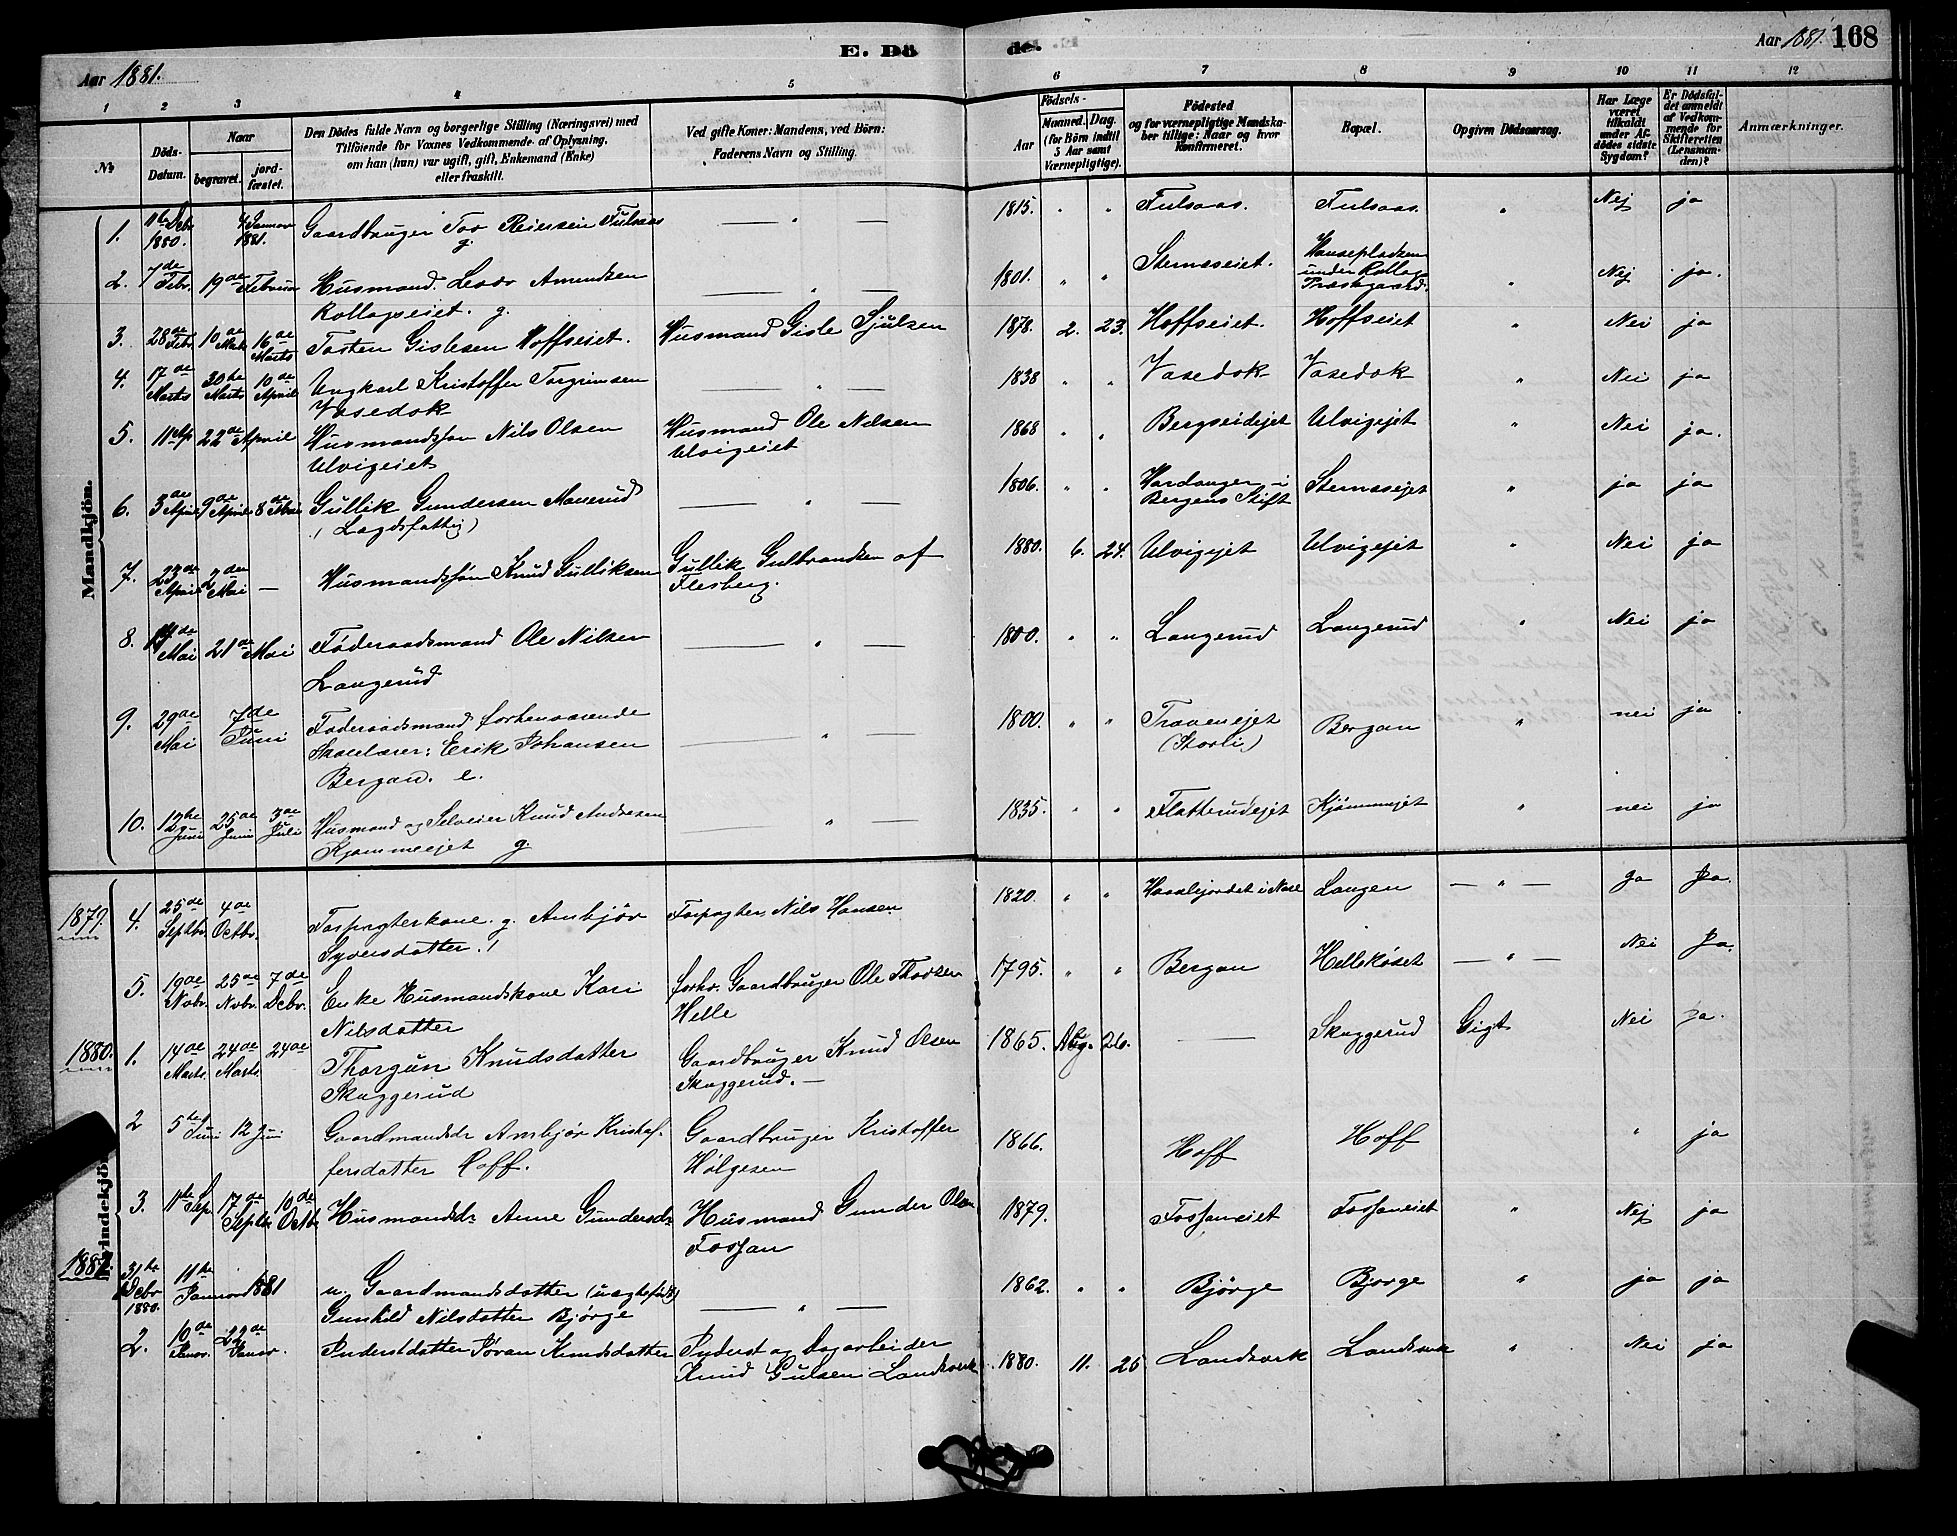 E. Dö de.
Aar 1881.
Aar 1881. 168
1 2 3 4 5 6 7 8 9 10 11 12
No
Döds-Datum.
Naar
begravet.
jord-fæstet.
Den Dödes fulde Navn og borgerlige Stilling (Næringsvei) med
Tilföiende for Voxnes Vedkommende af Oplysning,
om han (hun) var ugift, gift, Enkemand (Enke)
eller fraskilt.
Ved gifte Koner: Mandens, ved Börn:
Faderens Navn og Stilling.
Födsels-
Aar
Maaned. Dag.
(for Börn indtil
5 Aar samt
Værnepligtige).
Födested
og for værnepligtige Mandska-
ber tillige: Naar og hvor
konfirmeret.
Bopæl.
Opgiven Dödsaarsag.
Har Læge
været
tilkaldt
under Af-
dödes sidste
Sygdom?
Er Dödsfal-
det anmeldt
af Vedkom-
mende for
Skifteretten
(Lensman-
den)?
Anmærkninger.
Mandkjön.
1. 16 Debr 1880. 4 Januar 1881. Gaardbruger Tov Reiersen Fulsaas g. — " — 1815. " " Fulsaas. Fulsaas. " Nej ja
2. 7de Febr. 19de Februar Husmand Leodv Amundsen Rollagseiet. g. — " — 1801. " " Sternaseiet. Hansepladsen under Rollag Præstegaard. " Nej ja.
3. 28de Febr. 10de Marts 16de Marts Tosten Gislesen Hoffseiet. Husmand Gisle Sjulsen 1878. 2. 23. Hoffseiet. Hoffseiet " Nei ja
4. 17de Marts 30te Marts 10de April Ungkarl Kristoffer Torgrimsen Vasedok — " — 1838 " " Vasedok Vasedok " Nei ja
5. 11 Ap 22de April Husmandssøn Nils Olsen Ulvigeiet Husmand Ole Nilsen Ulvigeiet 1868 " " Bergseidejet Ulvigejet " Nei ja.
6. 3de April 9de April 8de Mai Gullik Gundersen Manerud (Lægdsfattig) — " — 1806. " " Hardanger i Bergens Stift Sternasejet " ja ja
7. 23de April 2den Mai — Husmandssøn Knud Gulliksen Gullik Gulbrandsen af Flesberg. 1880. 6. 24. Ulvigejet Ulvigejet " Nei ja
8. 14de Mai 21de Mai Føderaadsmand Ole Nilsen Langerud — " — 1800. " " Langerud Langerud " Nei ja
9. 29de Mai 7de Juni Føderaadsmand forhenværende Skolelærer: Erik Johansen Bergan. e. — " — 1800. " " Traaenejet (Storli) Bergan " nei ja
10. 12te Juni 25de Juni 3de Juli Husmand og Selveier Knud Andresen Kjømmeejet g. — " — 1835. " " Flatterudejet Kjømmejet " nei ja
Kvindekjön
1879. 4. 25de Septbr. 4de Octbr. Forpagterkone. g. Ambjør Syversdatter. Forpagter Nils Hansen 1820. " " i Nore Langen — " — ja Ja.
5. 19de Novbr. 25de Novbr. 7de Debr. Enke Husmandskone Kari Nilsdatter forhv. Gaardbruger Ole Thorsen Helle 1795. " " Bergan Hellekåset — " — Nei Ja.
1880. 1. 14de Marts. 24de Marts. 24de Thorgun Knudsdatter Skaggerud Gaardbruger Knud Olsen Skaggerud. — 1865. Aug. 26. — Skaggerud Gigt Nei Ja.
2 5te Juni 12 Juni Gaardmandsdr Ambjør Kristof-fersdatter Hoff. Gaardbruger Kristoffer Hølgesen 1866. Hoff Hoff " ja
3. 11te Sep. 17de Septbr 10de Octbr. Husmandsdr Anne Gundersdr Husmand Gunder Olsen Fossan 1879. Fossaneiet Fossaneiet " Nej ja
1881. 31te Debr 1880. 11te Januar 1881 u. Gaardmandsdatter (uægtefødt) Gunhild Nilsdatter Bjørge — " — 1862. " " Bjørge Bjørge " ja ja
2. 10de Januar. 22de Januar. Inderstdatter Jøran Knudsdatter Inderst og Dagarbeider Knud Gulsen Landsverk 1880. 11. 26 Landsverk Landsverk " Nei ja